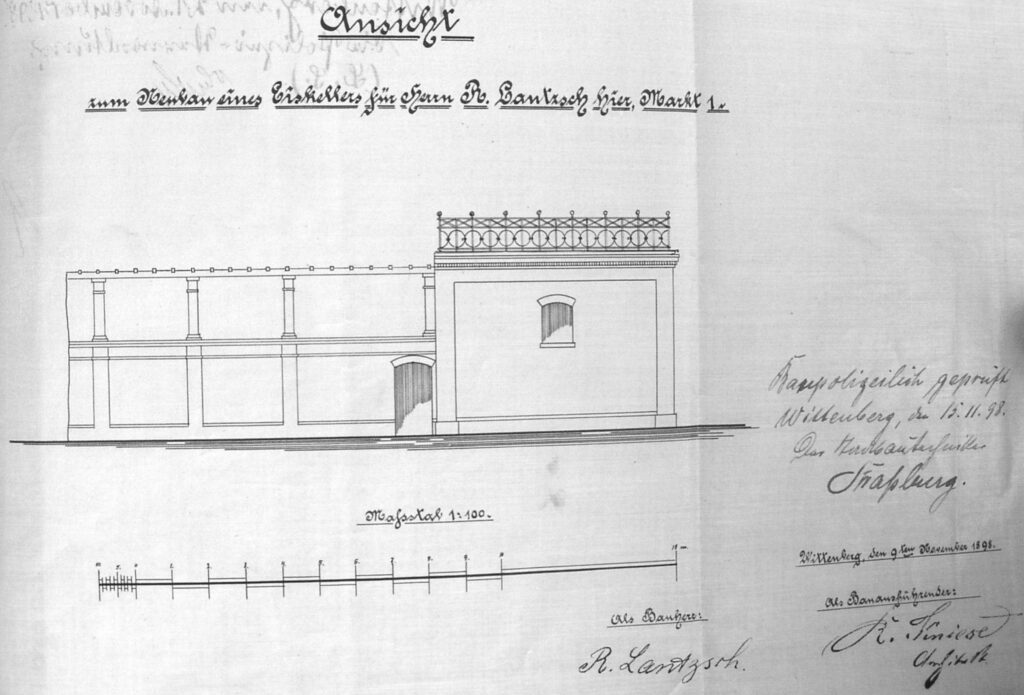 Ansicht
zum Neubau eines Eiskellers für Herrn R. Lantzsch hier, Markt 1.
Baupolizeilich geprüft
Wittenberg, den 15.11.98.
Der Stadtbautechniker
Straßburg.
Maßstab 1:100.
Wittenberg, den 9ten November 1898.
Als Bauherr:
R. Lantzsch.
Als Bauausführender:
Architekt